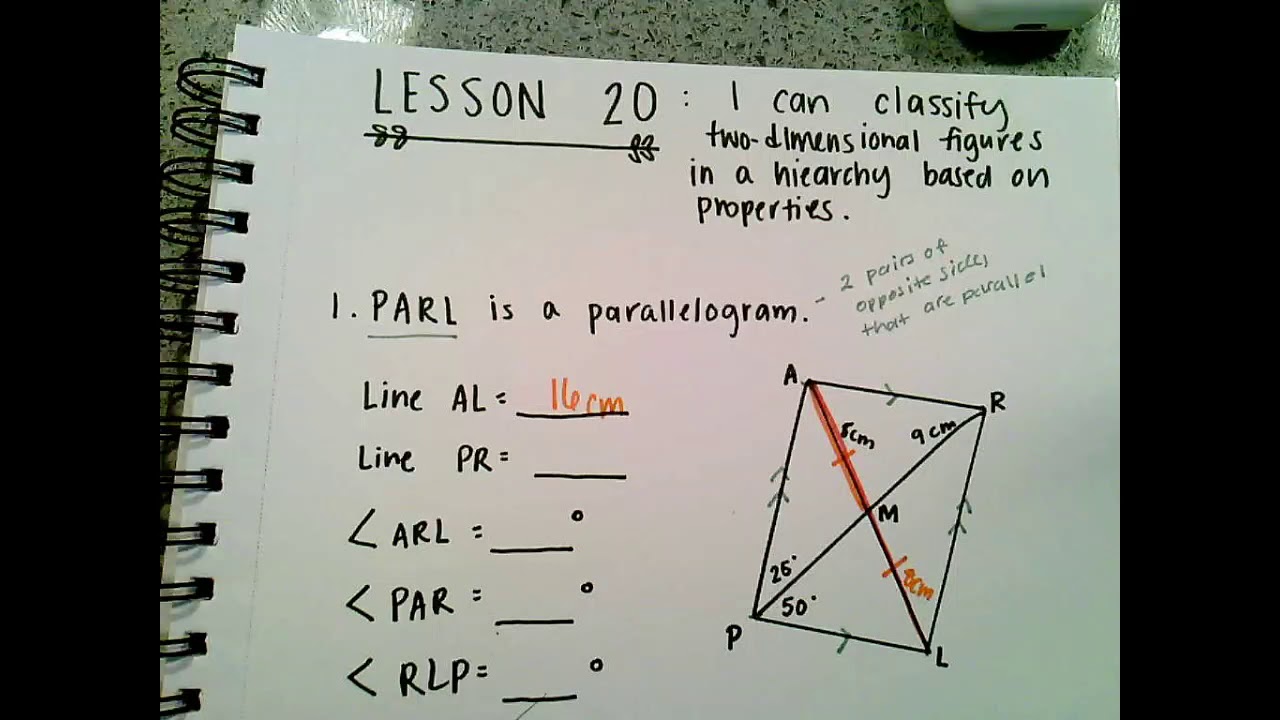 LESSON 20: I can classify
two-dimensional figures
in a hiearchy based on
properties.
1. PARL is a parallelogram. - 2 pairs of
opposite sides
that are parallel
Line AL = 16cm
Line PR = ____
< ARL = ____°
< PAR = ____°
< RLP = ____°
A
R
8cm
9cm
M
25°
8cm
50°
P
L